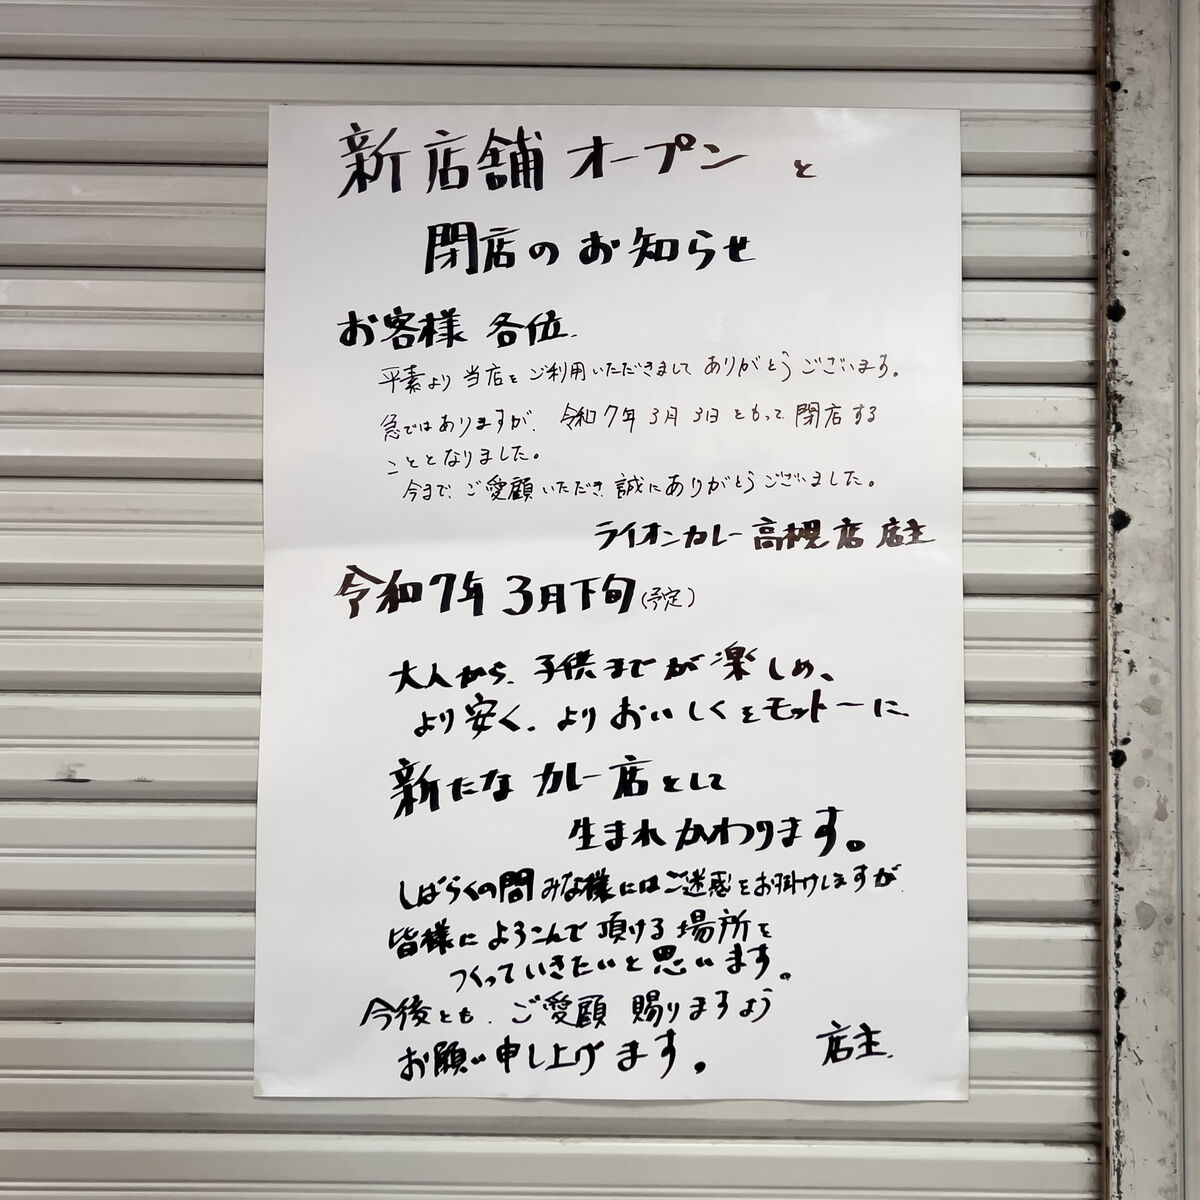 新店舗オープンと
閉店のお知らせ
お客様 各位.
平素より当店をご利用いただきましてありがとうございます。
急ではありますが、令和7年3月3日をもって閉店する
こととなりました。
今まで、ご愛顧いただき誠にありがとうございました。
ライオンカレー高槻店 店主
令和7年3月下旬(予定)
大人から、子供までが楽しめ、
より安く、よりおいしくをモットーに
新たなカレー店として
生まれかわります。
しばらくの間みな様にはご迷惑をお掛けしますが
皆様によろこんで頂ける場所を
つくっていきたいと思います。
今後とも、ご愛顧賜りますよう
お願い申し上げます。
店主.